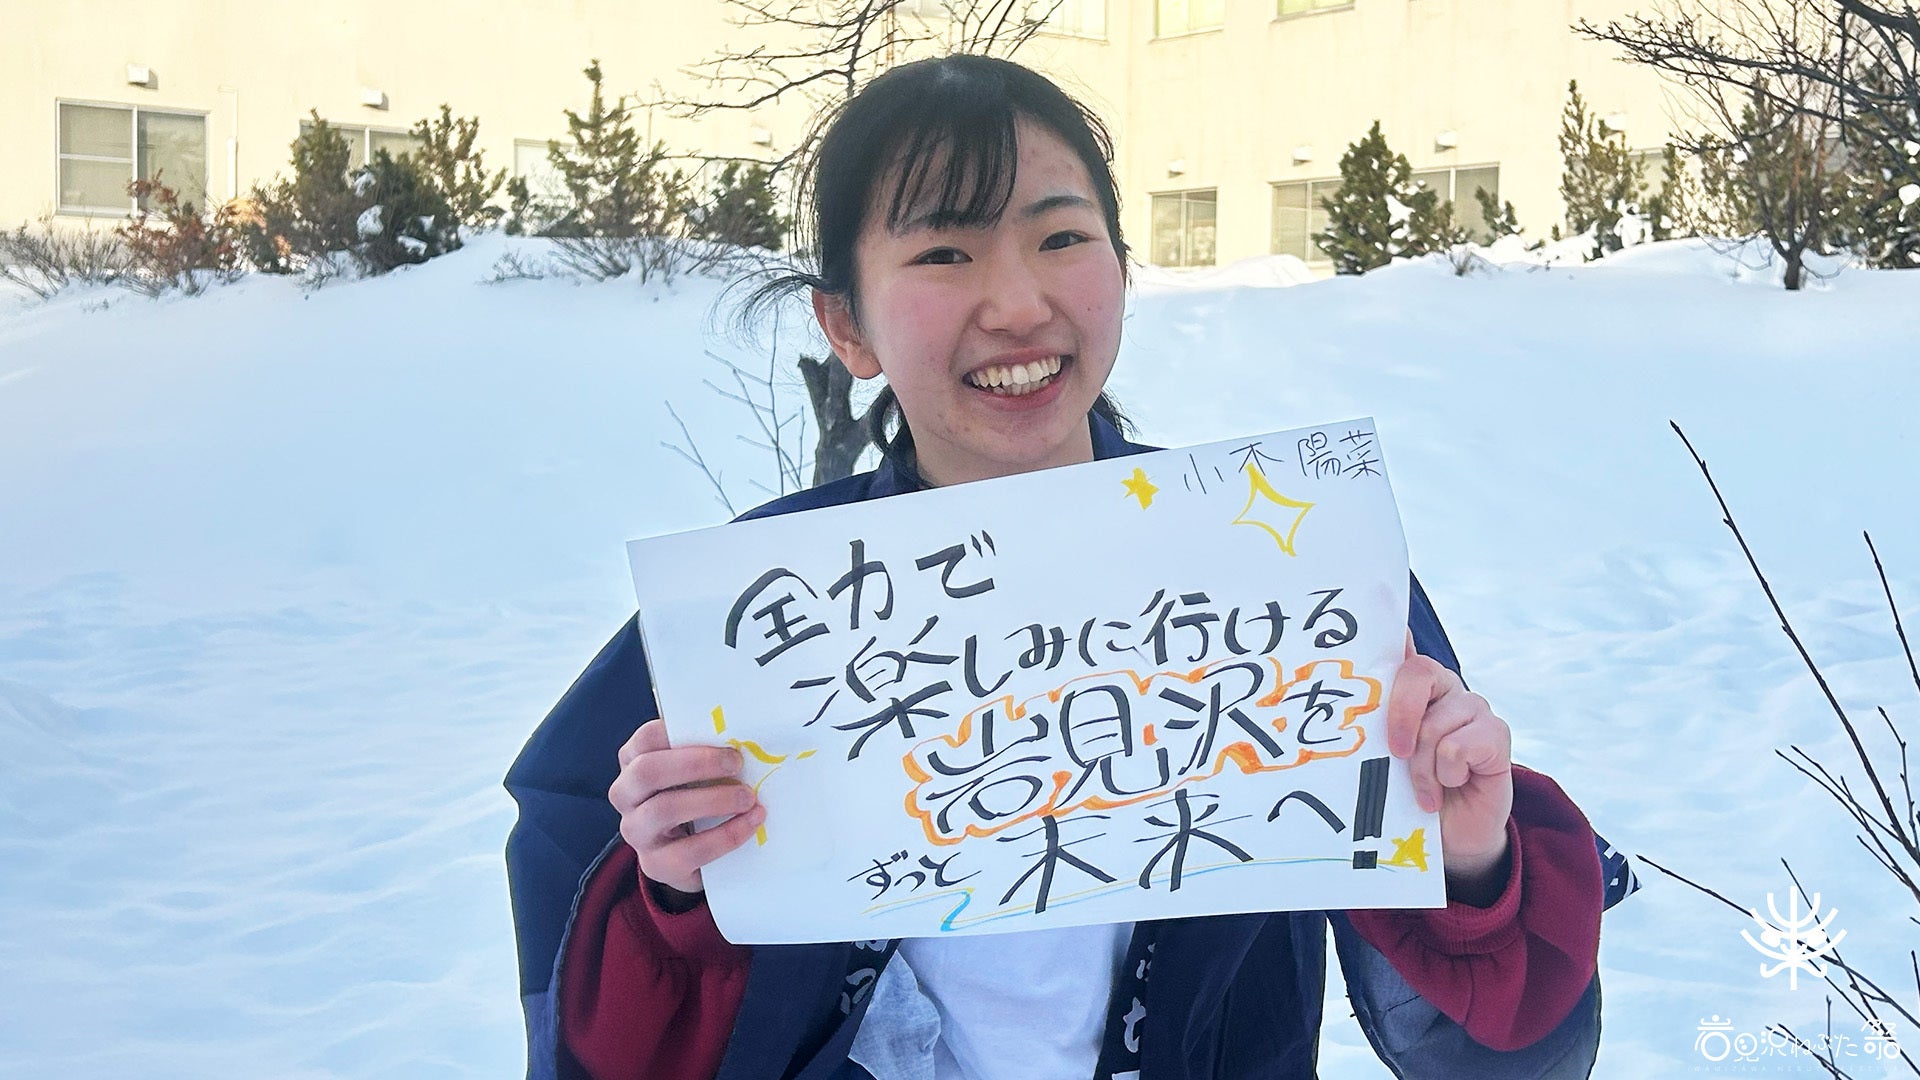 小木 陽菜
全力で
楽しみに行ける
岩見沢を
ずっと未来へ!
岩見沢ねぶた祭